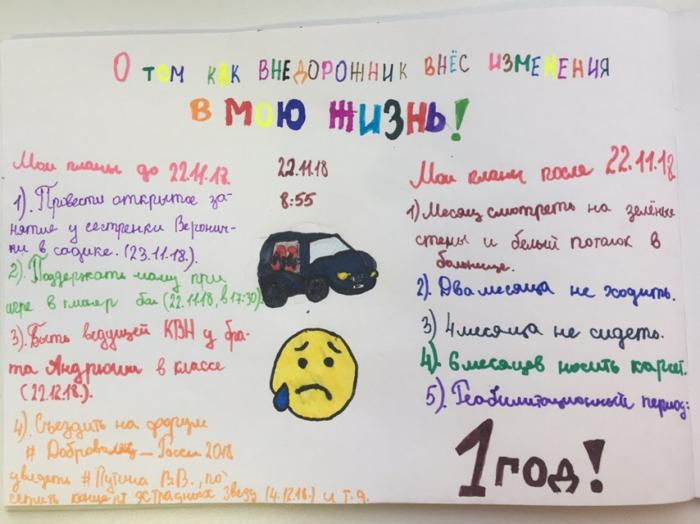 О ТОМ КАК ВНЕДОРОЖНИК ВНЁС ИЗМЕНЕНИЯ
В МОЮ ЖИЗНЬ!
Мои планы до 22.11.18.
1). Провести открытое за-
нятие у сестренки Веронич-
ки в садике. (23.11.18.).
2). Поддержать маму при
(22.11.18, в 17:30).
3). Быть ведущей КВН у бра-
та Андрюши в классе
(22.12.18.).
4). Съездить на форум
# Доброволец_России 2018
увидеть #Путина В.В., по-
сетить концерт эстрадных звезд (4.12.18.) и т.д.
22.11.18
8:55
Мои планы после 22.11.18.
1) Месяц смотреть на зелёные
стены и белый потолок в
больнице.
2). Два месяца не ходить.
3) 4 месяца не сидеть.
4). 6 месяцев носить корсет.
5). Реабилитационный период:
1 год!